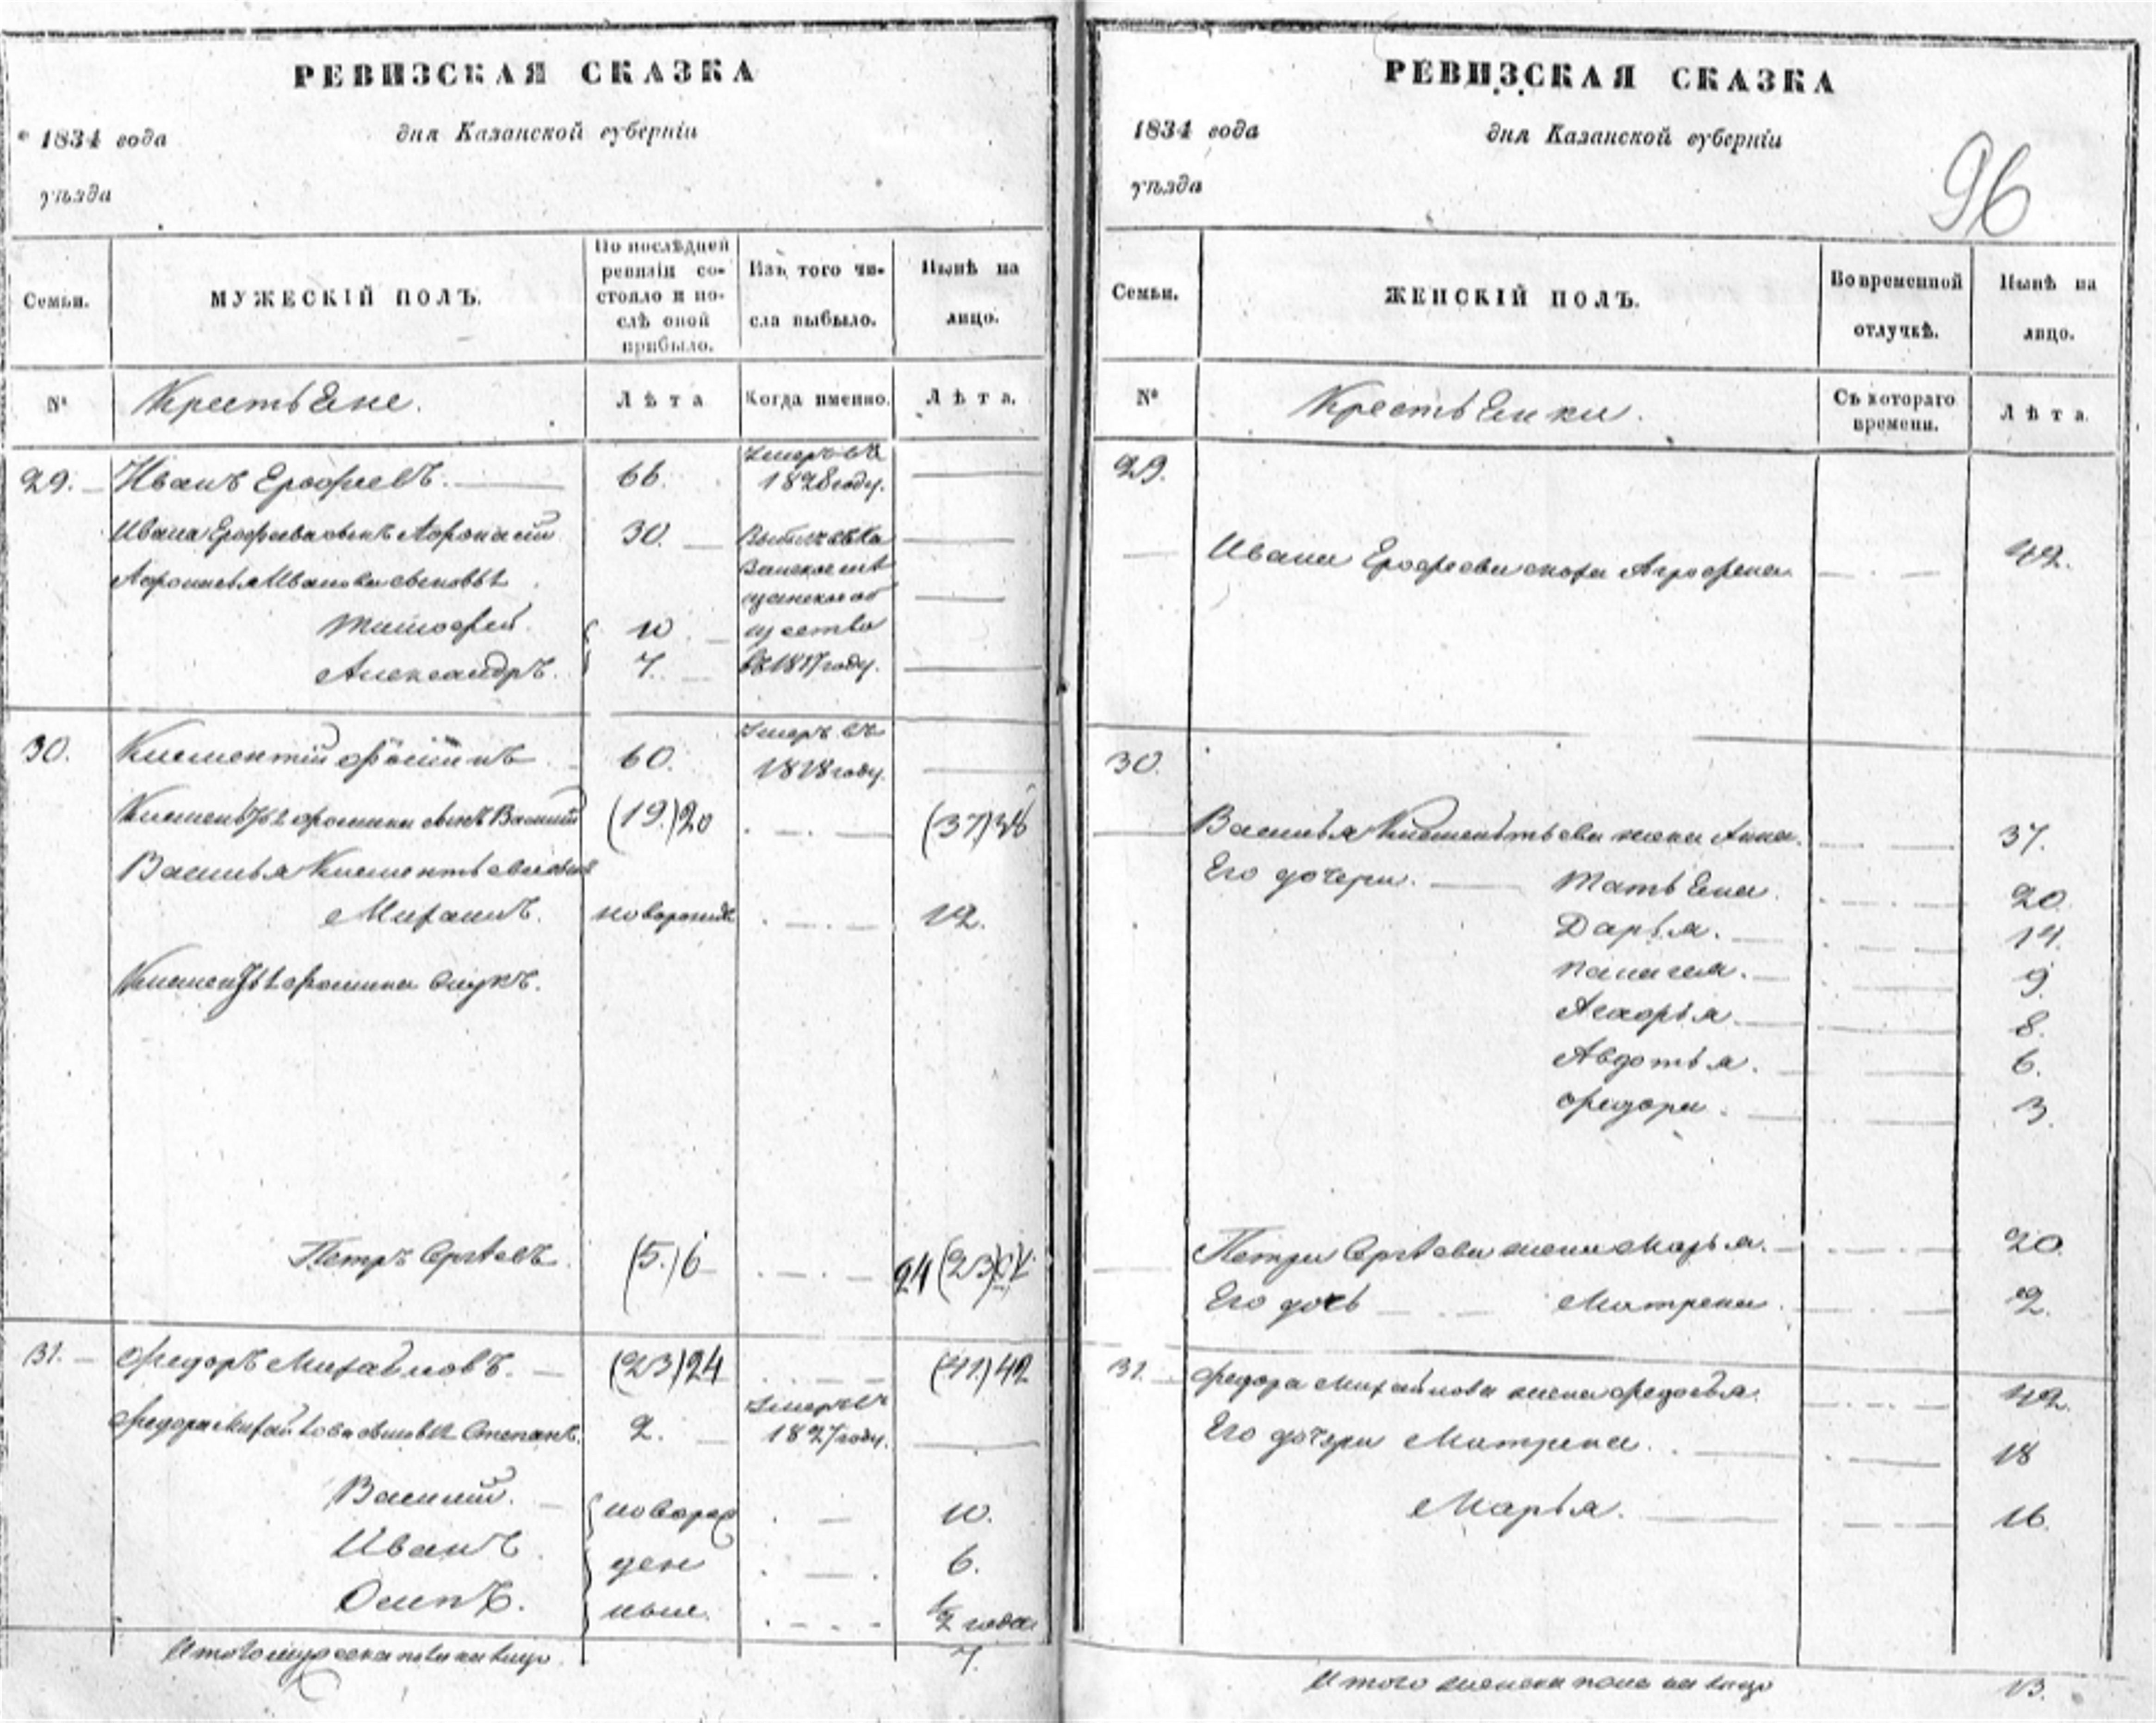 РЕВИЗСКАЯ СКАЗКА
1834 года
дня Казанской губерніи
уѣзда
Семьи.
МУЖЕСКІЙ ПОЛЪ.
По послѣдней ревизіи со-
стояло и по-
слѣ оной
прибыло.
Изъ того чи-
сла выбыло.
Нынѣ на
лицо.
№
Крестьяне.
Лѣта
Когда именно.
Лѣта.
29. Иванъ Ерофеевъ. 66. Умеръ въ
1828 году.
Ивана Ерофеева сынъ Афонасій 30.
Афонасья Иванова сыновья
Тимофей. 10
Александръ. 7. въ 1817 году.
30. Климентій Фоминъ 60. Умеръ въ
1818 году.
Климентья Фомина сынъ Василій (19.)20 (37)38
Василья Климентьева сынъ
Михаилъ. новорожд 12.
Климентья Фомина внукъ.
Петръ Сргѣевъ (5.)6 24(23)
31. Федоръ Михайловъ. (23)24 (41.)42
Федора Михайлова сыновья Степанъ. 2. Умеръ въ
1827 году.
Василій. новорож 10.
Иванъ ден 6.
Осипъ. ные. 1/2 года
Итого мужеска пола на лицо 7.
РЕВИЗСКАЯ СКАЗКА
1834 года
дня Казанской губерніи
уѣзда
96
Семьи.
ЖЕНСКІЙ ПОЛЪ.
Во временной
отлучкѣ.
Нынѣ на
лицо.
№
Крестьянки.
Съ котораго
времени.
Лѣта.
29.
Ивана Ерофеева Агрофена 42.
30.
Василья Климентьева жена Анна. 37.
Его дочери. Татьяна. 20.
Дарья. 14.
Палагея. 9.
Агафья. 8.
Авдотья. 6.
Федора. 3.
Петра Сргѣева жена Марья. 20.
Его дочь Матрена. 2.
31. Федора Михайлова жена Федосья. 42.
Его дочери Матрена. 18
Марья. 16.
Итого женска пола на лицо 13.